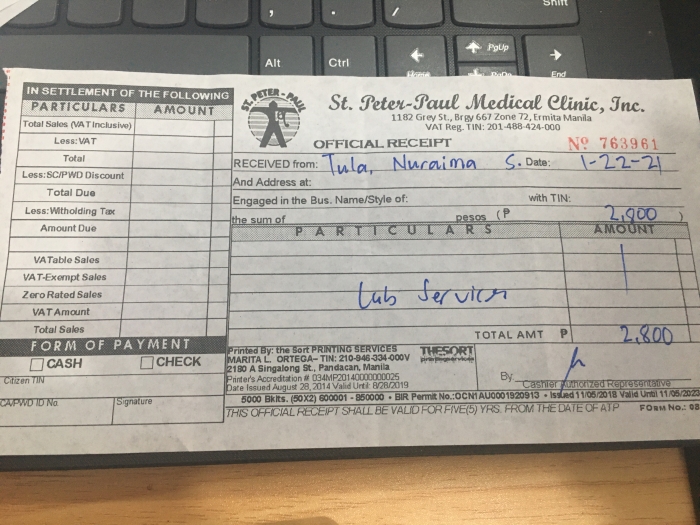 Shift
Alt
Ctrl
PgUp
Home
PgDn
End
IN SETTLEMENT OF THE FOLLOWING
PARTICULARS AMOUNT
Total Sales (VAT Inclusive)
Less: VAT
Total
Less: SC/PWD Discount
Total Due
Less: Witholding Tax
Amount Due
VATable Sales
VAT-Exempt Sales
Zero Rated Sales
VAT Amount
Total Sales
FORM OF PAYMENT
CASH CHECK
Citizen TIN
CA/PWD ID No. Signature
ST. PETER-PAUL
St. Peter-Paul Medical Clinic, Inc.
1182 Grey St., Brgy 667 Zone 72, Ermita Manila
VAT Reg. TIN: 201-488-424-000
OFFICIAL RECEIPT Nº 763961
RECEIVED from: Tula, Nuraima S. Date: 1-22-21
And Address at:
Engaged in the Bus. Name/Style of: with TIN:
the sum of pesos (₱ 2,800 )
PARTICULARS AMOUNT
Lab Services
TOTAL AMT ₱ 2,800
Printed By: the Sort PRINTING SERVICES
MARITA L. ORTEGA- TIN: 210-946-334-000V
2180 A Singalong St., Pandacan, Manila
Printer's Accreditation # 034MP20140000000025
Date Issued August 28, 2014 Valid Until: 8/28/2019
THESORT
By:
Cashier Authorized Representative
5000 Bklts. (50X2) 600001 - 850000 • BIR Permit No.: OCN1AU0001920913 • Issued 11/05/2018 Valid Until 11/05/2023
THIS OFFICIAL RECEIPT SHALL BE VALID FOR FIVE(5) YRS. FROM THE DATE OF ATP FORM NO.: 08